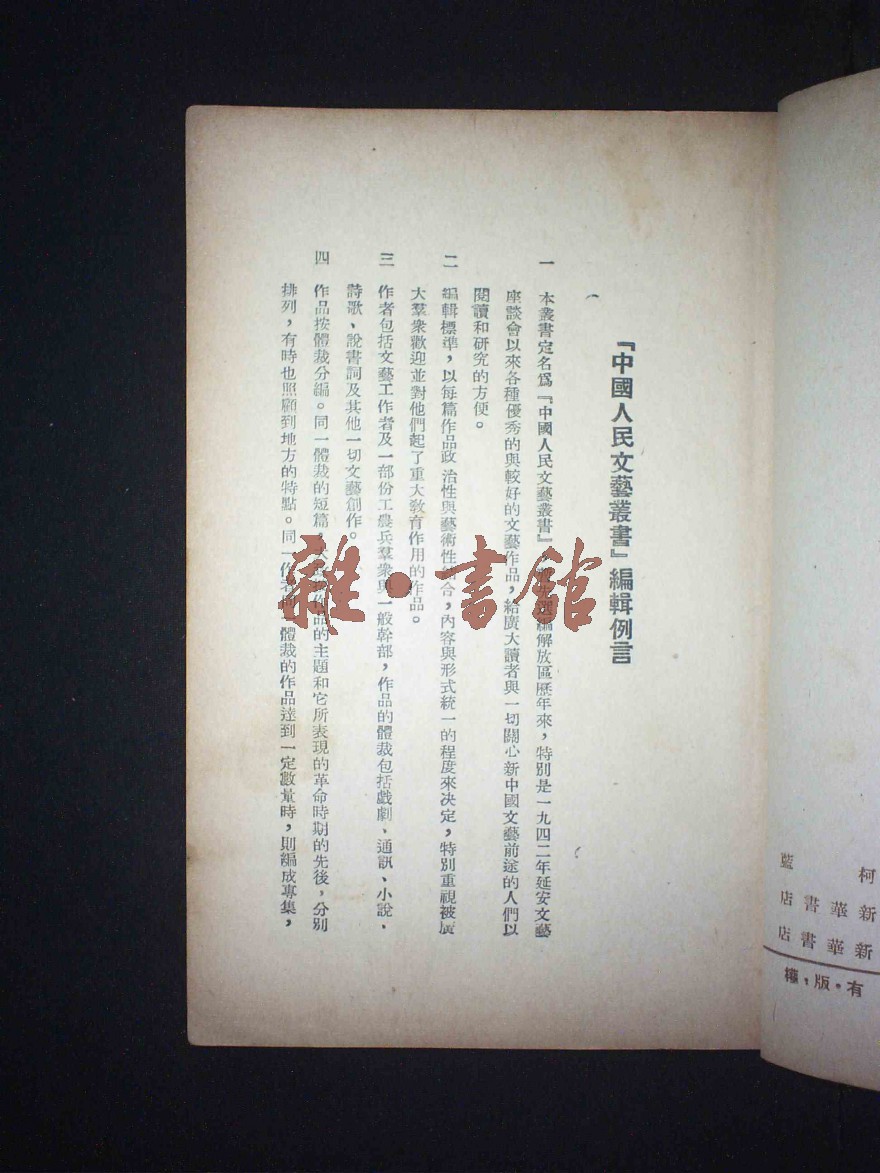 『中國人民文藝叢書』編輯例言
一 本叢書定名爲『中國人民文藝叢書』 解放區歷年來，特別是一九四二年延安文藝
座談會以來各種優秀的與較好的文藝作品，給廣大讀者與一切關心新中國文藝前途的人們以
閱讀和研究的方便。
二 編輯標準，以每篇作品政治性與藝術性結合，內容與形式統一的程度來決定，特別重視被廣
大羣衆歡迎並對他們起了重大敎育作用的作品。
三 作者包括文藝工作者及一部份工農兵羣衆與一般幹部，作品的體裁包括戲劇、通訊、小說、
詩歌、說書詞及其他一切文藝創作。
四 作品按體裁分編。同一體裁的短篇 作品的主題和它所表現的革命時期的先後，分別
排列，有時也照顧到地方的特點。同一作者 體裁的作品達到一定數量時，則編成專集，
雜·書館
柯 藍
新華書店
新華書店
有·版·權